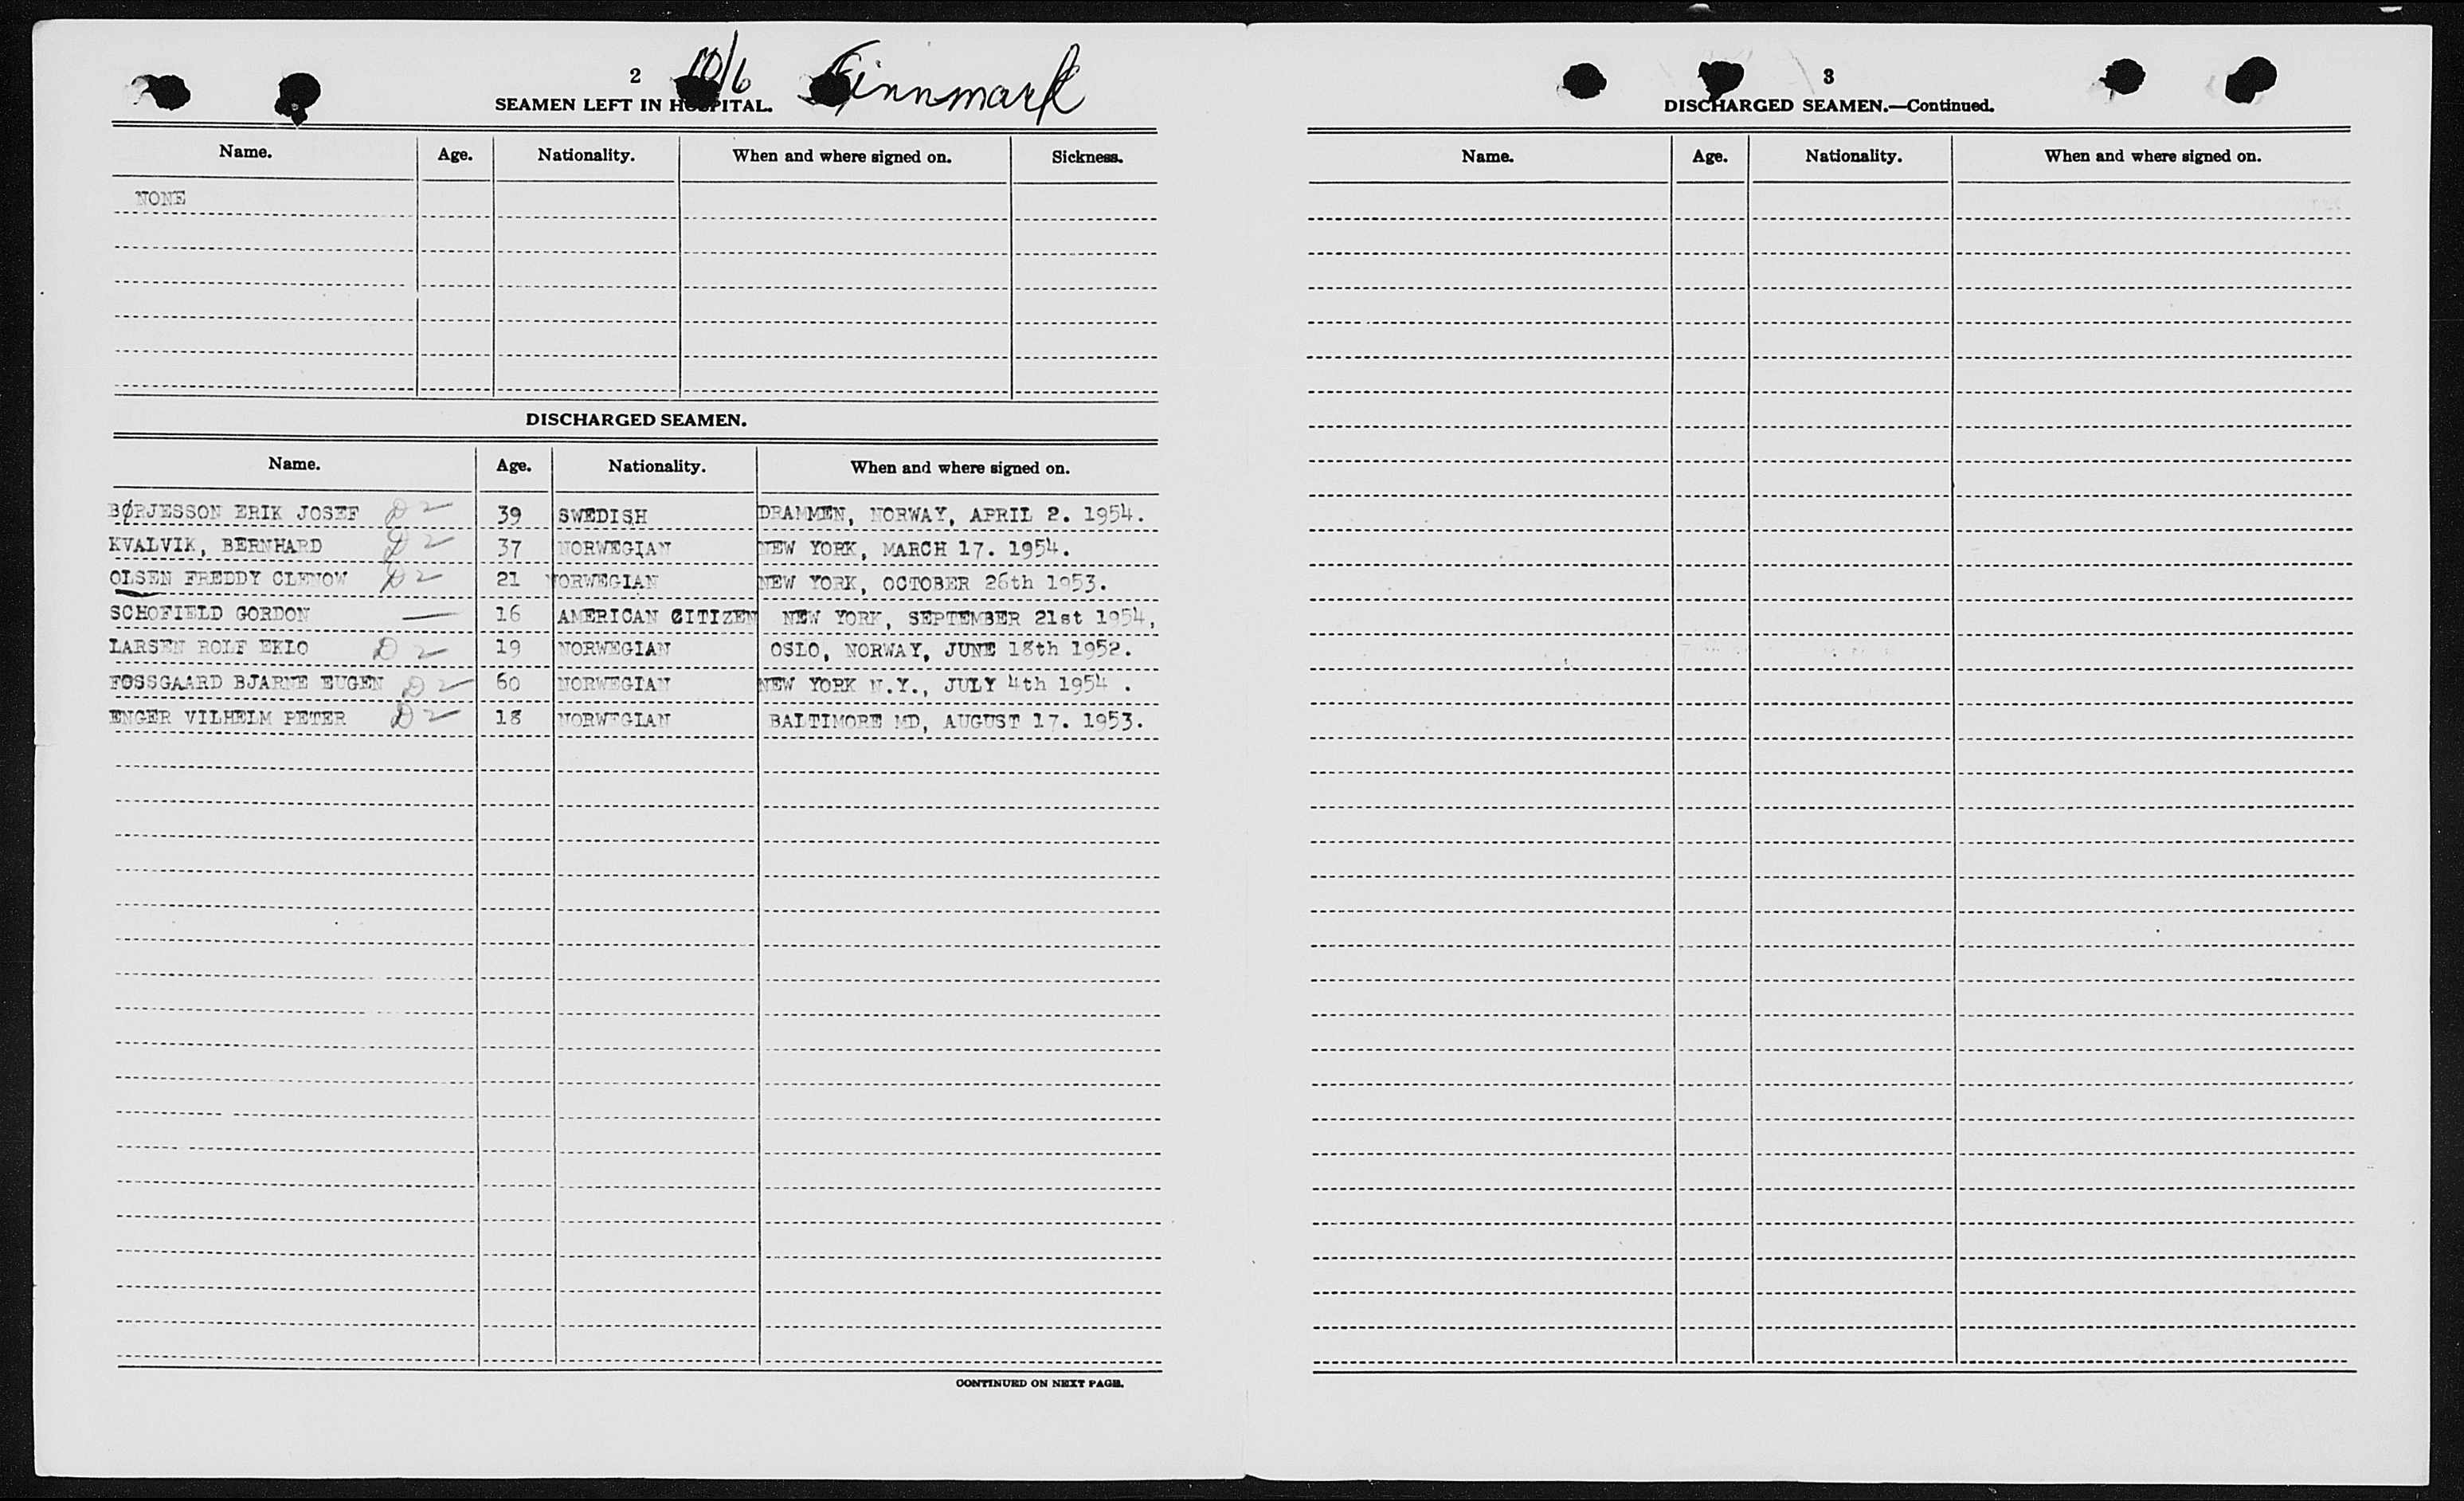 2 10/6 Finnmark
SEAMEN LEFT IN HOSPITAL.
Name. Age. Nationality. When and where signed on. Sickness.
NONE
DISCHARGED SEAMEN.
Name. Age. Nationality. When and where signed on.
BØRJESSON ERIK JOSEF D2 39 SWEDISH DRAMMEN, NORWAY, APRIL 2. 1954.
KVALVIK, BERNHARD D2 37 NORWEGIAN NEW YORK, MARCH 17. 1954.
OLSEN FREDDY CLENOW D2 21 NORWEGIAN NEW YORK, OCTOBER 26th 1953.
SCHOFIELD GORDON — 16 AMERICAN CITIZEN NEW YORK, SEPTEMBER 21st 1954,
LARSEN ROLF EKLO D2 19 NORWEGIAN OSLO, NORWAY, JUNE 18th 1952.
FOSSGAARD BJARNE EUGEN D2 60 NORWEGIAN NEW YORK N.Y., JULY 4th 1954 .
ENGER VILHELM PETER D2 18 NORWEGIAN BALTIMORE MD, AUGUST 17. 1953.
CONTINUED ON NEXT PAGE.
3
DISCHARGED SEAMEN.—Continued.
Name. Age. Nationality. When and where signed on.